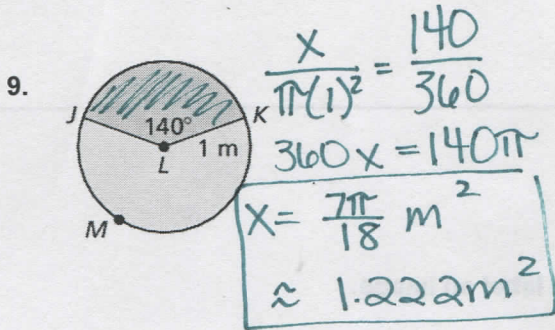 9.
J
K
140°
L
1 m
M
x/π(1)² = 140/360
360x = 140π
x = 7π/18 m²
≈ 1.222m²